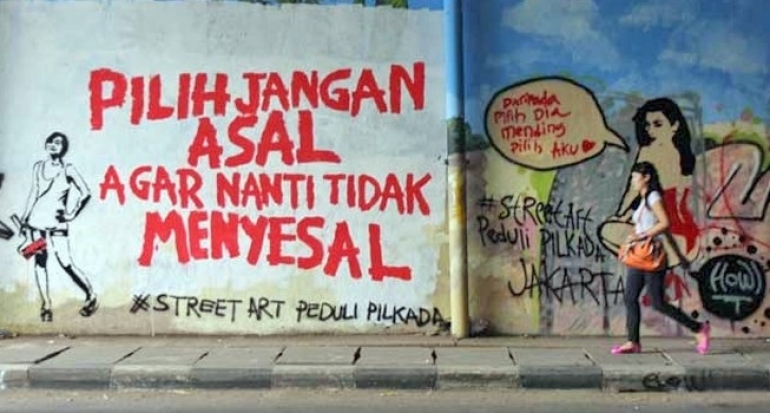 PILIH JANGAN
ASAL
AGAR NANTI TIDAK
MENYESAL
#STREET ART PEDULI PILKADA
Daripada
Pilih Dia
mending
pilih AKU
#StreetArt
Peduli PILKADA
JAKARTA
HOW